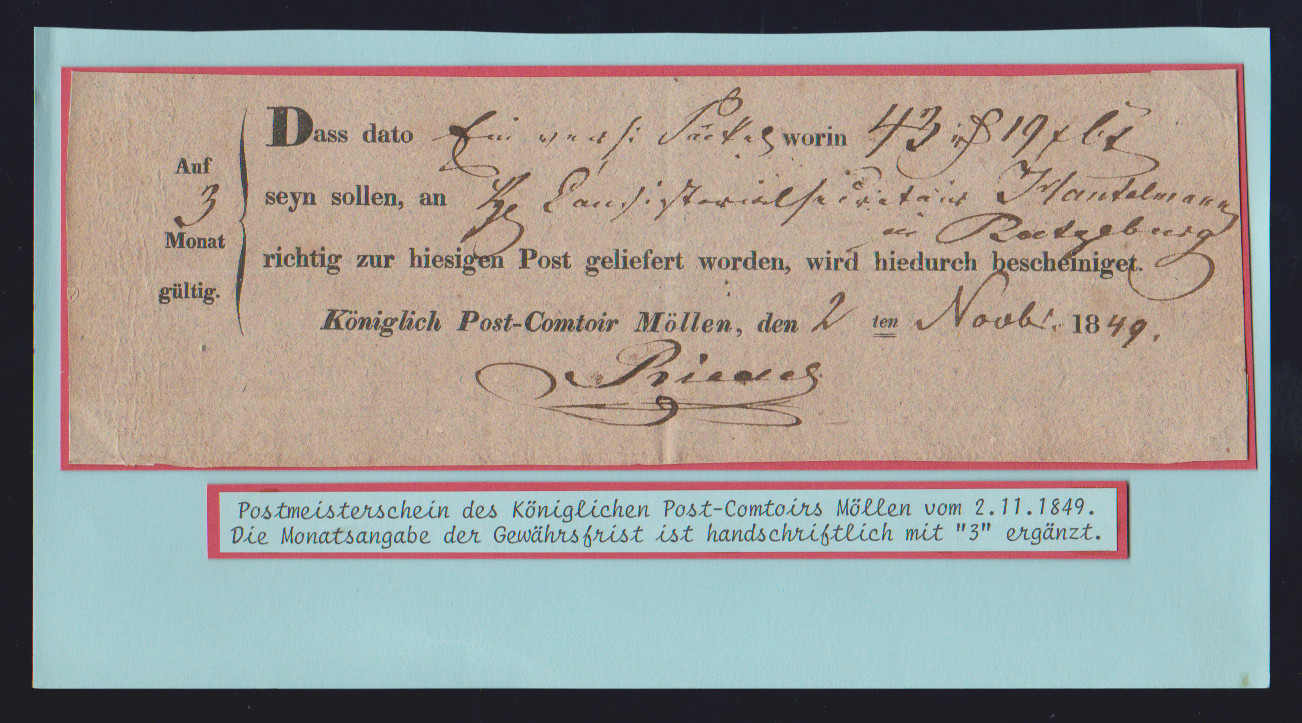 Auf
3
Monat
gültig.
Dass dato Ein vers: Päckel worin 43 19
seyn sollen, an Consistorialsecretair Mantelmann
in Ratzeburg
richtig zur hiesigen Post geliefert worden, wird hiedurch bescheiniget.
Königlich Post-Comtoir Möllen, den 2 ten Novbr. 1849.
Postmeisterschein des Königlichen Post-Comtoirs Möllen vom 2.11.1849.
Die Monatsangabe der Gewährsfrist ist handschriftlich mit "3" ergänzt.